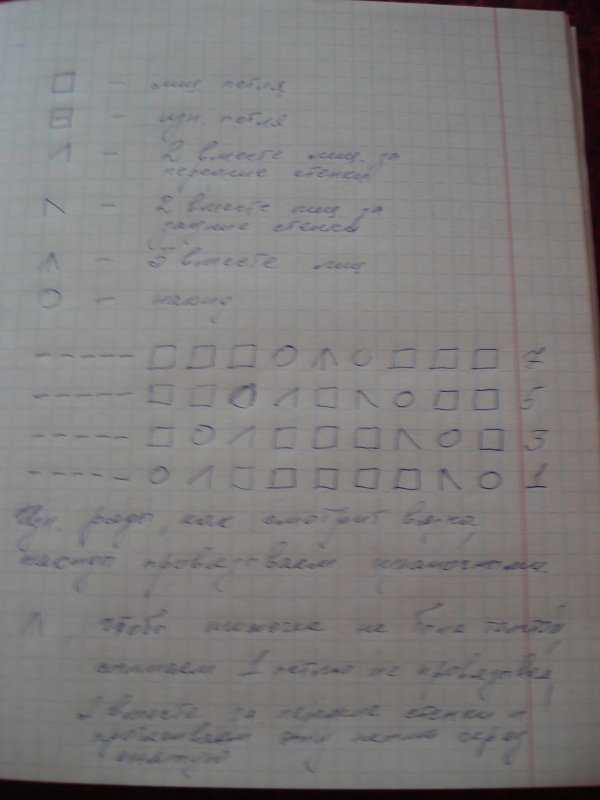 □ – лиц. петля
⊟ – изн. петля
/| – 2 вместе лиц. за
передние стенки
|\ – 2 вместе лиц за
задние стенки
Λ – 3 вместе лиц
О – накид
- - - - - □ □ □ О Λ О □ □ □ 7
- - - - - □ □ О /| □ |\ О □ □ 5
- - - - - □ О /| □ □ □ |\ О □ 3
- - - - - О /| □ □ □ □ □ |\ О 1
Изн. ряды, как смотрит вязка,
накид провязываем изнаночными
, чтобы не была
снимаем 1 петлю не провязывая,
2 вместе за передние стенки и
протягиваем эту петлю через
снятую